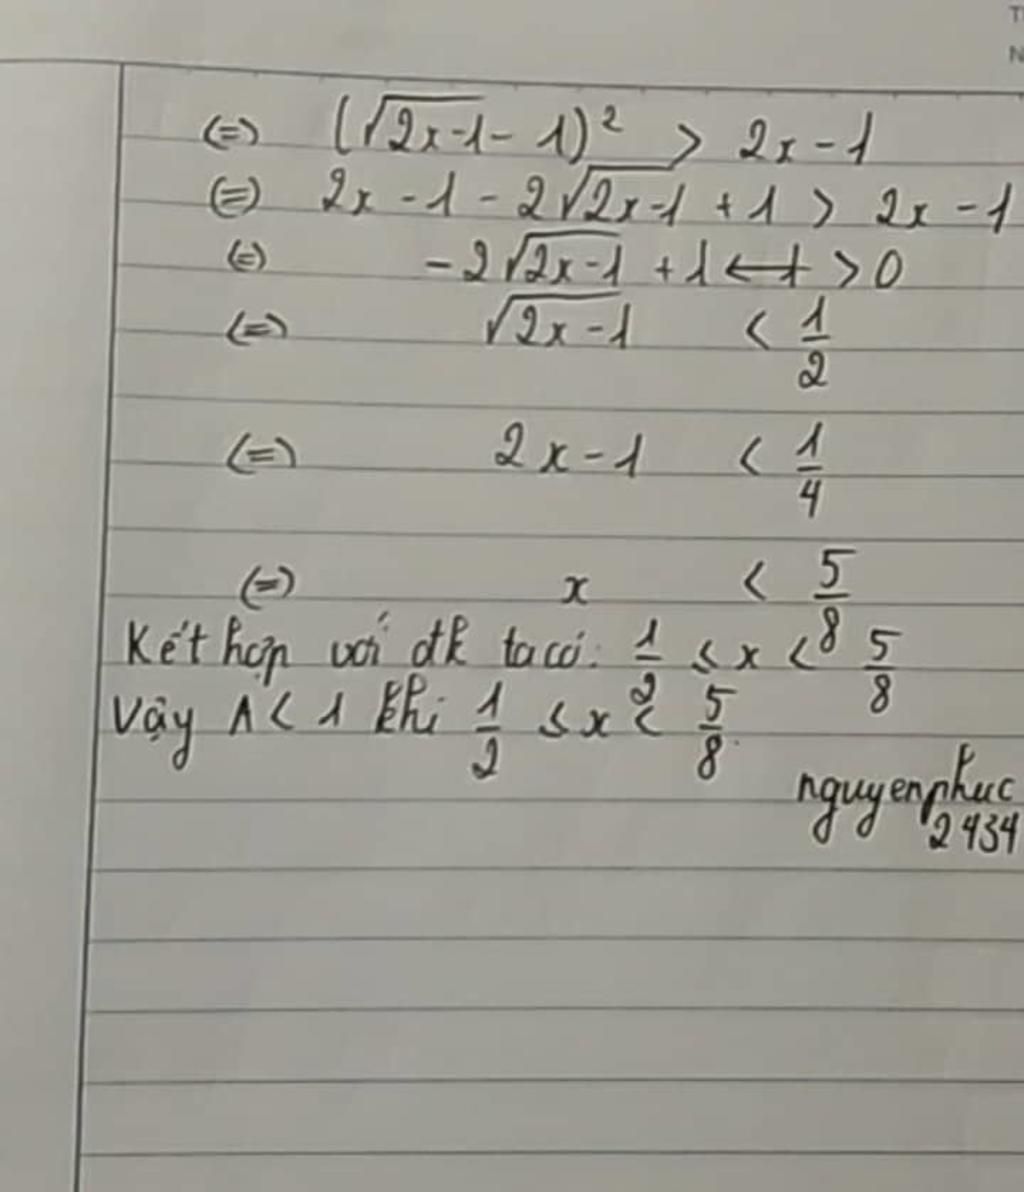 (=) (√2x-1 - 1)² > 2x - 1
(=) 2x - 1 - 2√2x-1 + 1 > 2x - 1
(=) -2√2x-1 + 1 > 0
(=) √2x-1 < 1/2
(=) 2x - 1 < 1/4
(=) x < 5/8
Kết hợp với đk ta có: 1/2 ≤ x < 5/8
Vậy A < 1 khi 1/2 ≤ x < 5/8.
nguyenphuc
2434